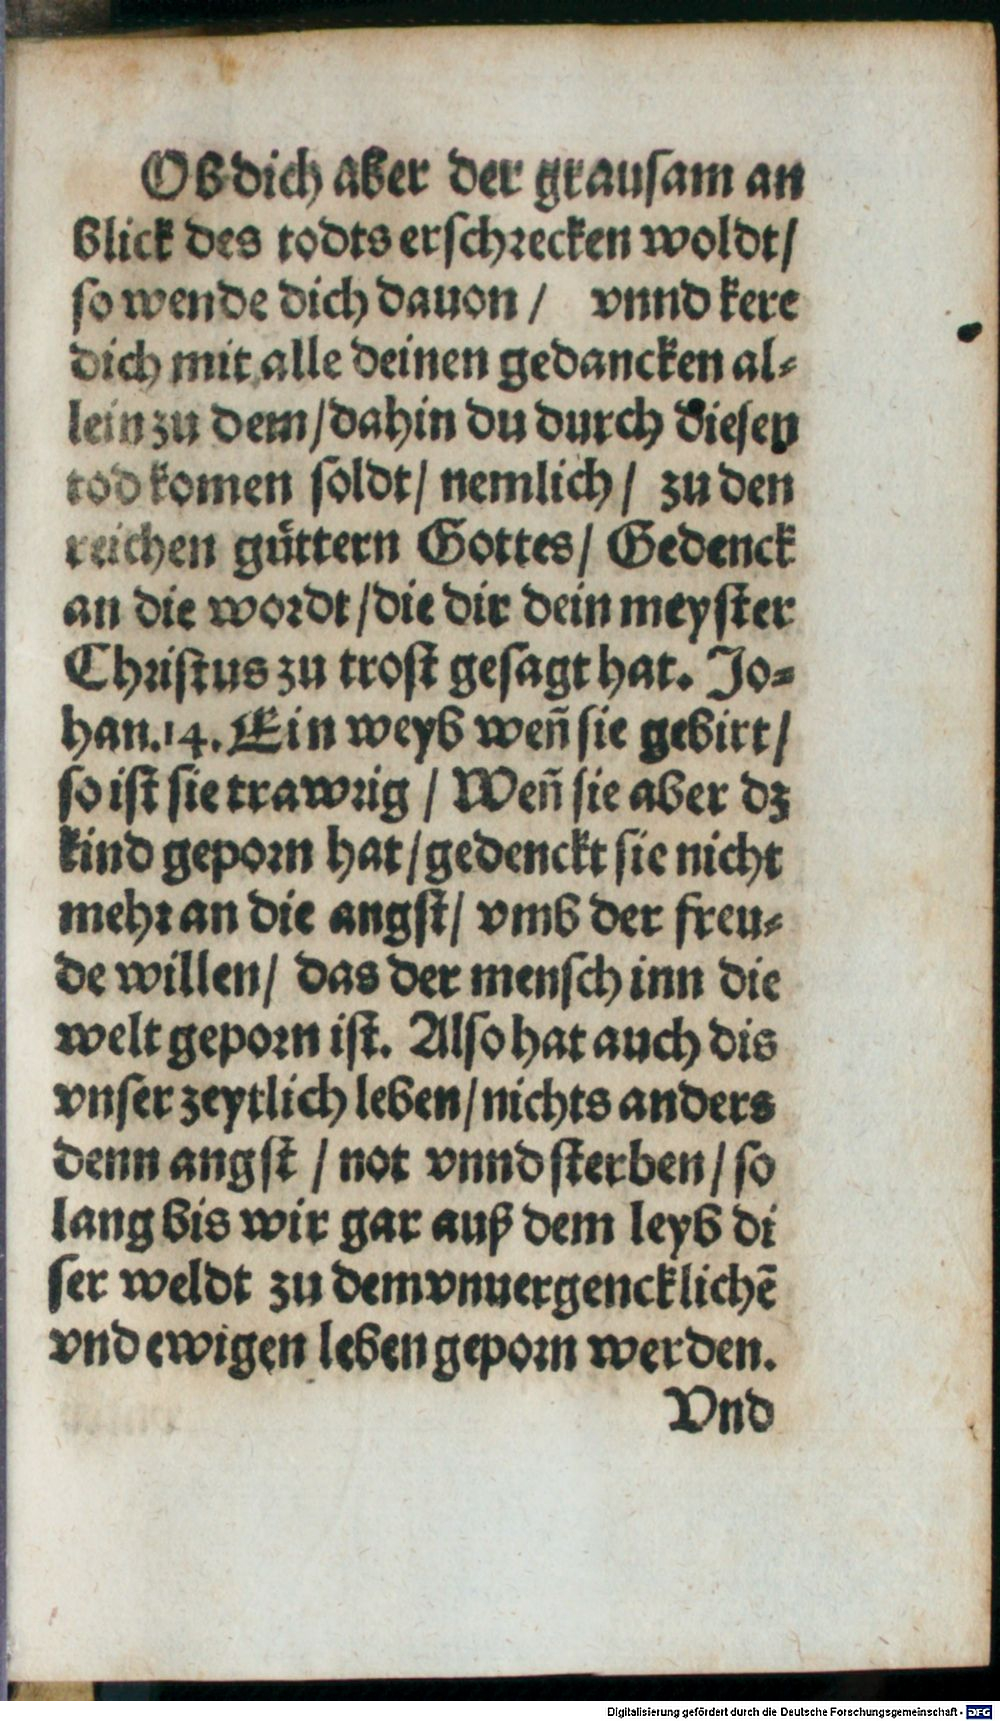 Ob dich aber der grausam an
blick des todts erschrecken woldt/
so wende dich dauon / vnnd kere
dich mit alle deinen gedancken al⸗
lein zu dem/dahin du durch diesen
tod komen soldt/ nemlich/ zu den
reichen guͤttern Gottes/ Gedenck
an die wordt/die dir dein meyster
Christus zu trost gesagt hat. Jo⸗
han.14. Ein weyb weñ sie gebirt/
so ist sie trawrig / Weñ sie aber dz
kind geporn hat/gedenckt sie nicht
mehr an die angst/ vmb der freu⸗
de willen/ das der mensch inn die
welt geporn ist. Also hat auch dis
vnser zeytlich leben/nichts anders
denn angst / not vnnd sterben/ so
lang bis wir gar auß dem leyb di
ser weldt zu dem vnuergencklichē
vnd ewigen leben geporn werden.
Vnd
Digitalisierung gefördert durch die Deutsche Forschungsgemeinschaft - DFG